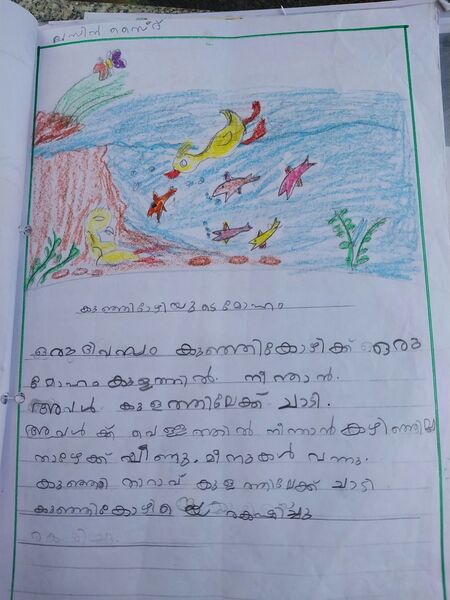 കുഞ്ഞികോഴിയുടെ മോഹം
ഒരു ദിവസം കുഞ്ഞികോഴിക്ക് ഒരു
മോഹം കുളത്തിൽ നീന്താൻ.
അവൾ കുളത്തിലേക്ക് ചാടി.
അവൾ ക്ക് വെള്ളത്തിൽ നീന്താൻ കഴിഞ്ഞില്ല
താഴേക്ക് വീണു. മീനുകൾ വന്നു.
കുഞ്ഞി താറാവ് കുളത്തിലേക്ക് ചാടി
കുഞ്ഞികോഴിയെ രക്ഷിച്ചു